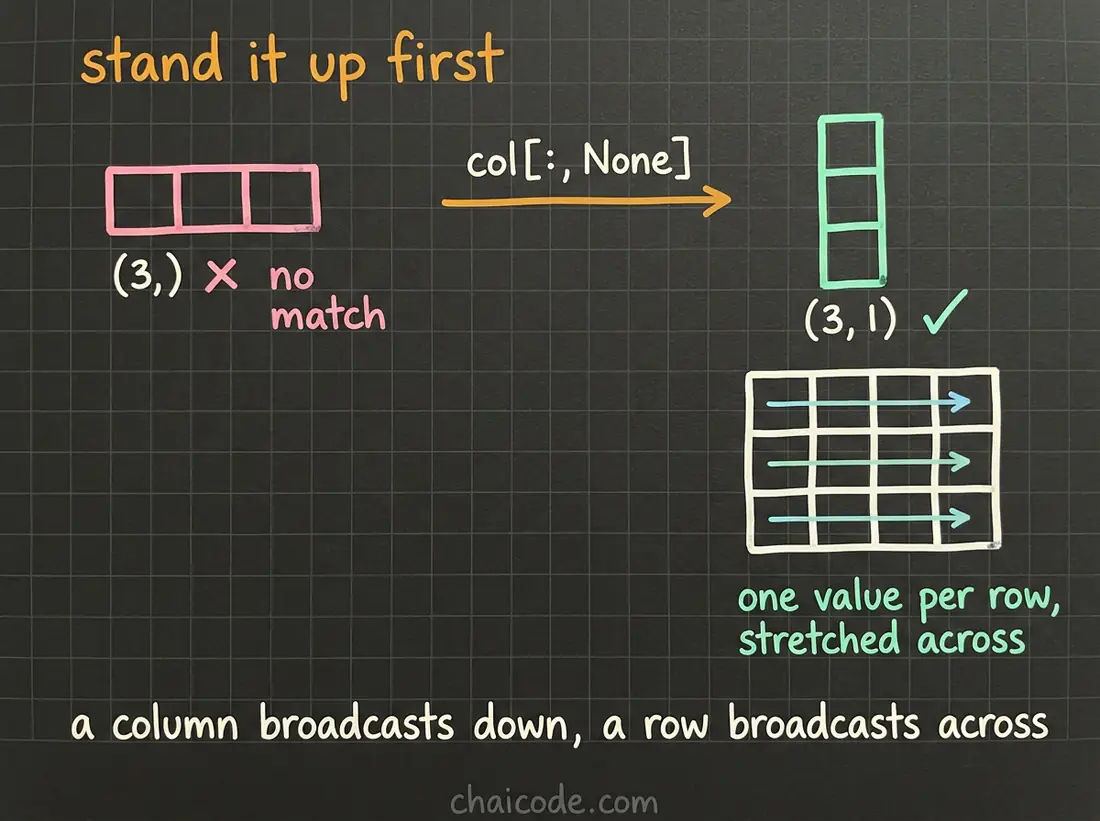 stand it up first
col[:, None]
(3,) ✗ no
match
(3, 1) ✓
one value per row,
stretched across
a column broadcasts down, a row broadcasts across
chaicode.com